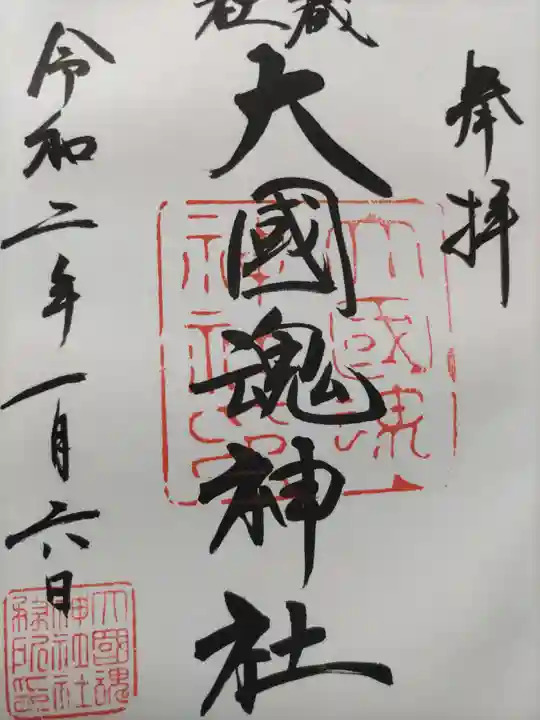 奉拝
武蔵
総社
大國魂神社
令和二年一月六日
大國魂
神社社
務所印